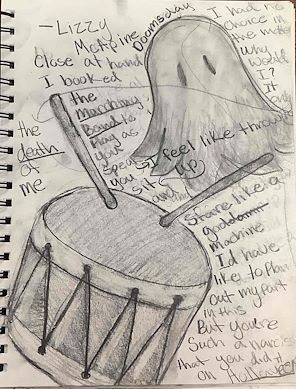 —Lizzy
McApine
Doomsday
Close at hand
I booked
the
Marching
Band to
Play as
you
Speak
I feel like throwing
up
you
sit
and
Stare like a
goddamn
machine
I'd have
like to plan
out my part
in this
But you're
Such a narciss
that you did it
on Halloween
the
death
of
me
I had no
choice in
the matter
why
would
I?
It
only